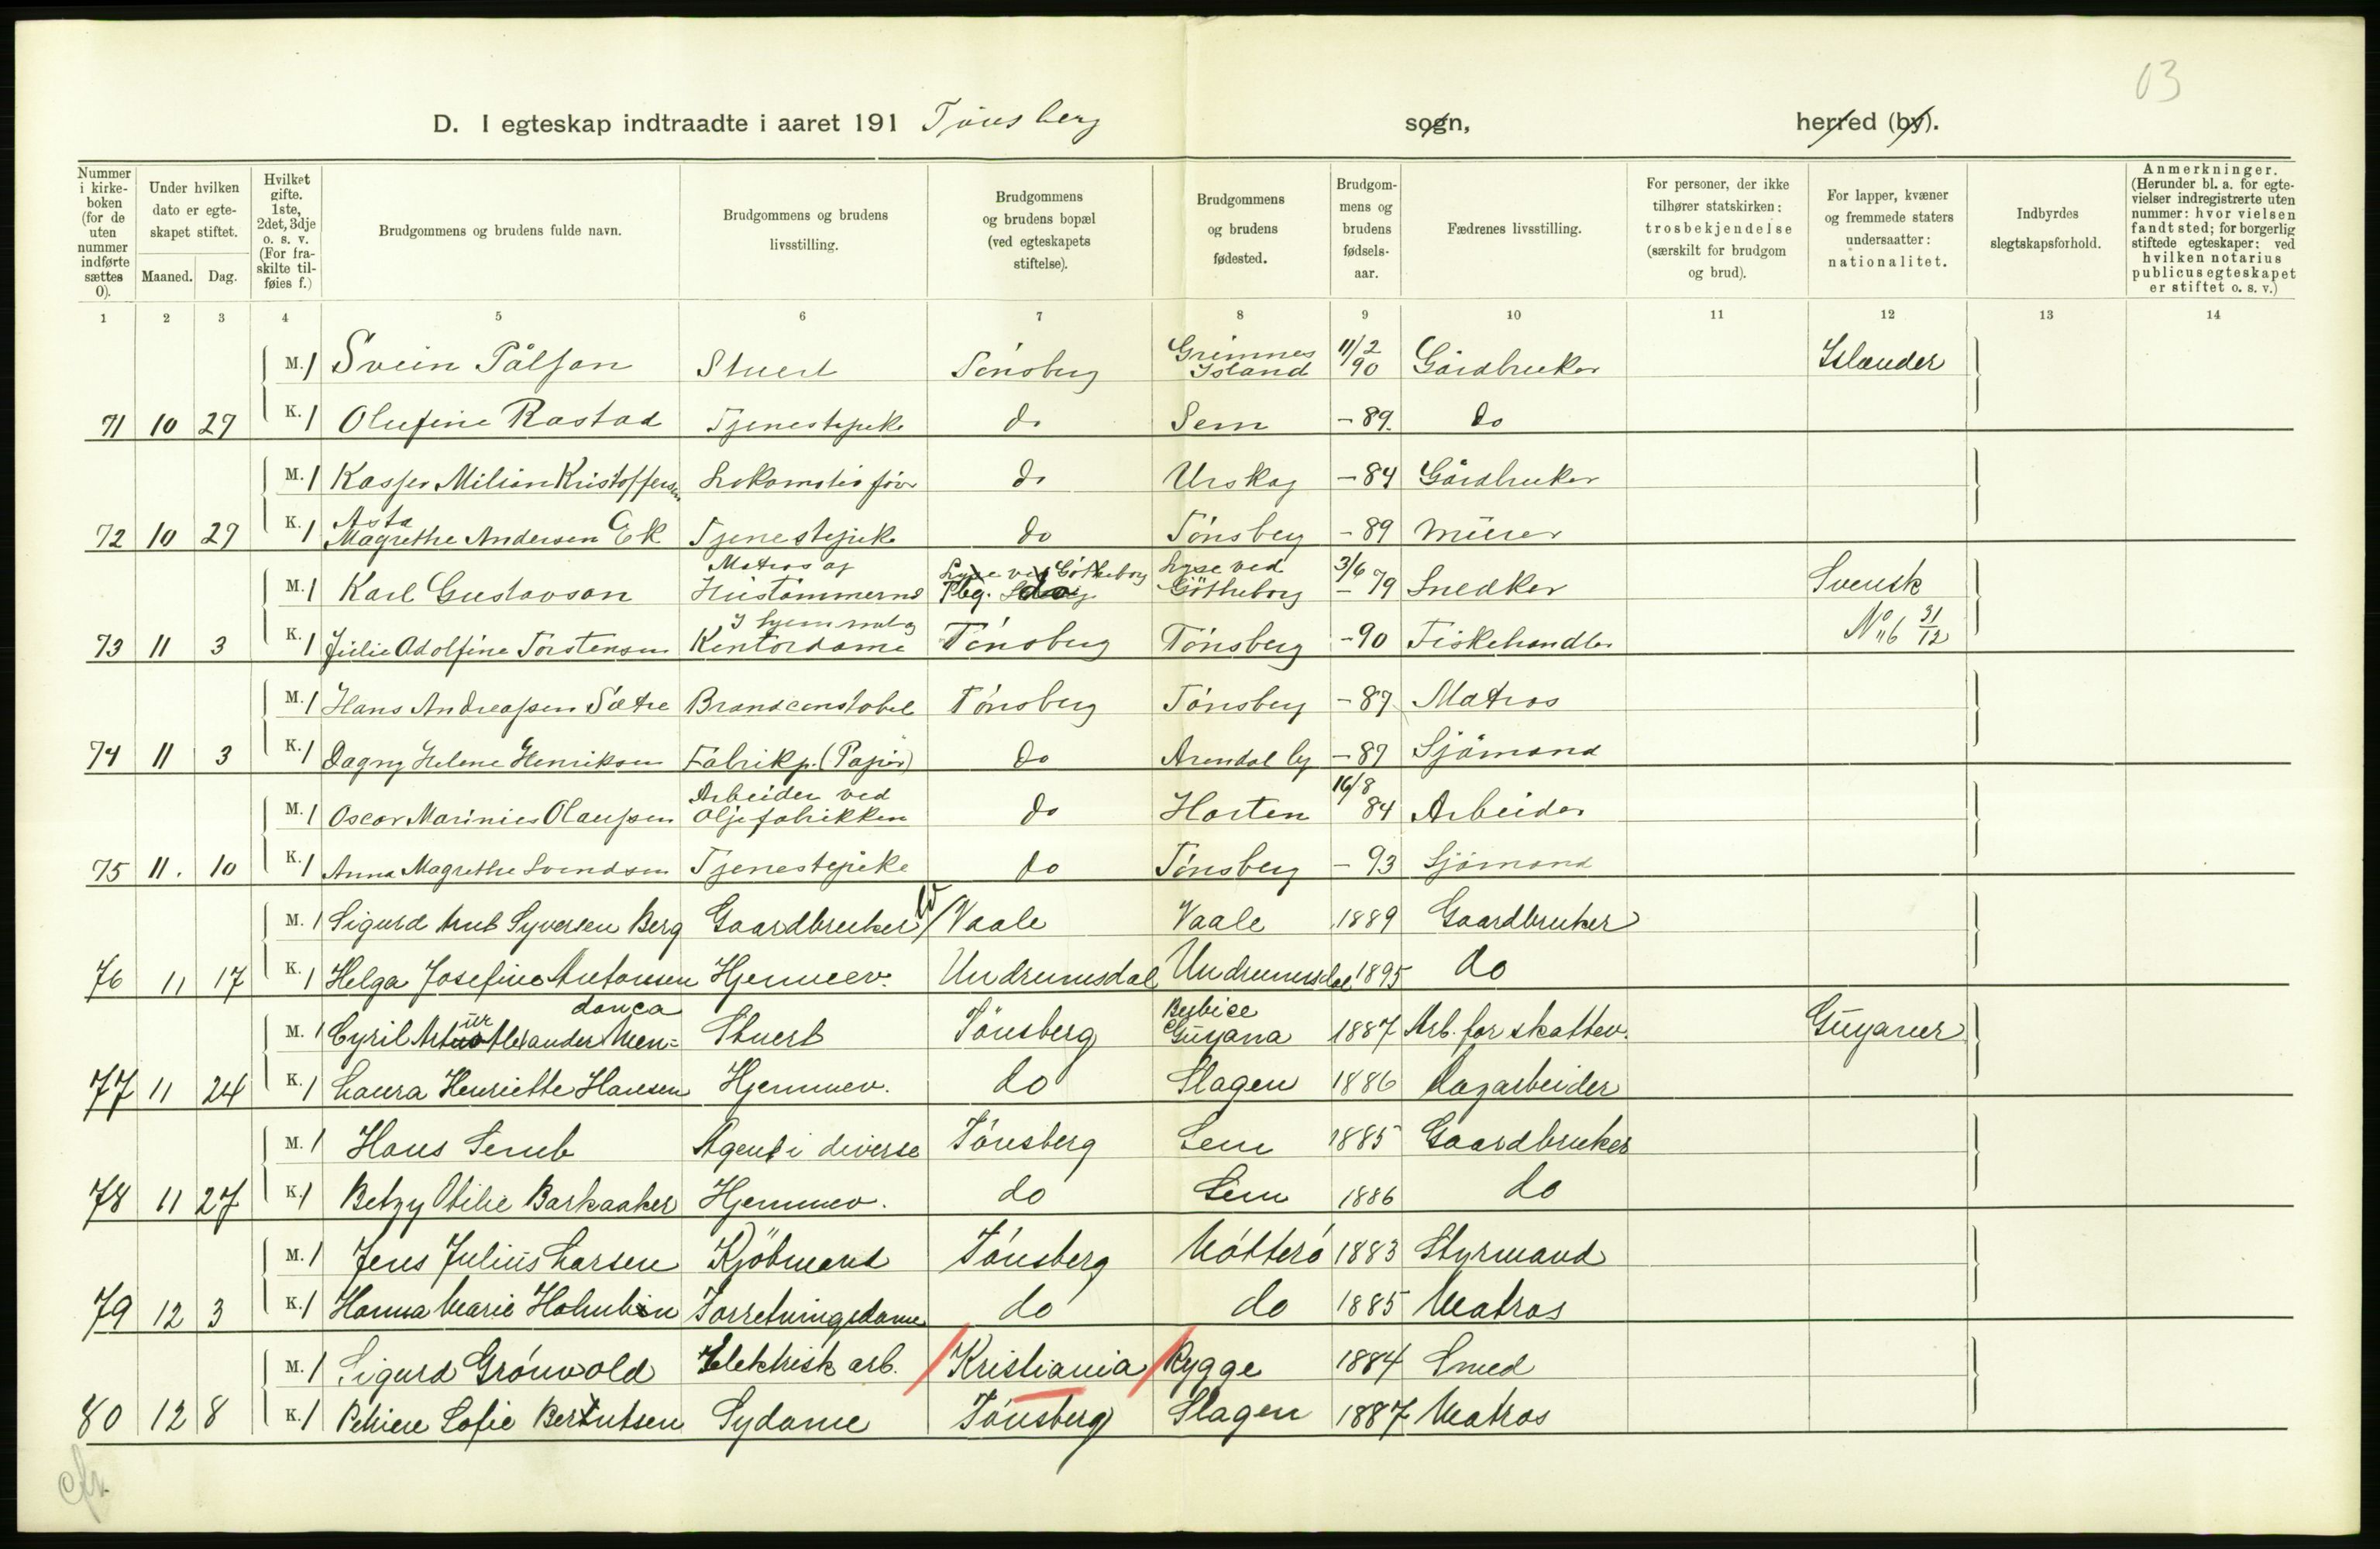 03
D. I egteskap indtraadte i aaret 191 Tønsberg sogn, herred (by).
Nummer i kirkeboken (for de uten nummer indførte sættes 0).
Under hvilken dato er egteskapet stiftet.
Maaned. Dag.
Hvilket gifte. 1ste, 2det, 3dje o. s. v. (For fraskilte tilføies f.)
Brudgommens og brudens fulde navn.
Brudgommens og brudens livsstilling.
Brudgommens og brudens bopæl (ved egteskapets stiftelse).
Brudgommens og brudens fødested.
Brudgommens og brudens fødselsaar.
Fædrenes livsstilling.
For personer, der ikke tilhører statskirken: trosbekjendelse (særskilt for brudgom og brud).
For lapper, kvæner og fremmede staters undersaatter: nationalitet.
Indbyrdes slegtskapsforhold.
Anmerkninger. (Herunder bl. a. for egtevielser indregistrerte uten nummer: hvor vielsen fandt sted; for borgerlig stiftede egteskaper: ved hvilken notarius publicus egteskapet er stiftet o. s. v.)
1 2 3 4 5 6 7 8 9 10 11 12 13 14
M. 1 Svein Pålsson Stuert Tönsberg Grimnes Island 11/2 90 Gårdbruker Islænder
71 10 29 K. 1 Olufine Rastad Tjenestepike do Sem - 89. do
M. 1 Kasper Milian Kristoffersen Lokomotivförer do Urskog - 84 Gårdbruker
72 10 29 K. 1 Asta Magrethe Andersen Ek Tjenestepike do Tönsberg - 89 Murer
M. 1 Karl Gustavson Matros og Hustömmermd Lyse ved Götheborg Tbg. do Lyse ved Götheborg 3/6 - 79 Snedker Svensk
73 11 3 K. 1 Julie Adolfine Torstensen Kontordame Tönsberg Tönsberg - 90 Fiskehandler No 116 31/12
M. 1 Hans Andreassen Sætre Brandconstabel Tönsberg Tönsberg - 87 Matros
74 11 3 K. 1 Dagny Helene Henriksen Fabrikp. (Papir) do Arendal by - 87 Sjömand
M. 1 Oscar Marinius Olaussen Arbeider ved Oljefabrikken do Horten 16/8 84 Arbeider
75 11. 10 K. 1 Anna Magrethe Svendsen Tjenestepike do Tönsberg - 93 Sjömand
M. 1 Sigurd Arnt Syversen Berg Gaardbruker Vaale Vaale 1889 Gaardbruker
76 11 17 K. 1 Helga Josefine Antonsen Hjemmev. Undrumsdal Undrumsdal 1895 do
M. 1 Cyril Artur Alexander Mendonca Stuert Tönsberg Berbice Guyana 1887 Arb. for skattev. Guyaner
77 11 24 K. 1 Laura Henriette Hansen Hjemmev. do Slagen 1886 Dagarbeider
M. 1 Hans Semb Agent i diverse Tönsberg Sem 1885 Gaardbruker
78 11 27 K. 1 Betzy Otilie Barkaaker Hjemmev. do Sem 1886 do
M. 1 Jens Julius Larsen Kjöbmand Tönsberg Nötterö 1883 Styrmand
79 12 3 K. 1 Hanna Marie Holmbin Forretningsdame do do 1885 Matros
M. 1 Sigurd Grönvold Elektrisk arb. Kristiania Rygge 1884 Smed
80 12 8 K. 1 Petrine Sofie Berntsen Sydame Tönsberg Slagen 1887 Matros
cfr.